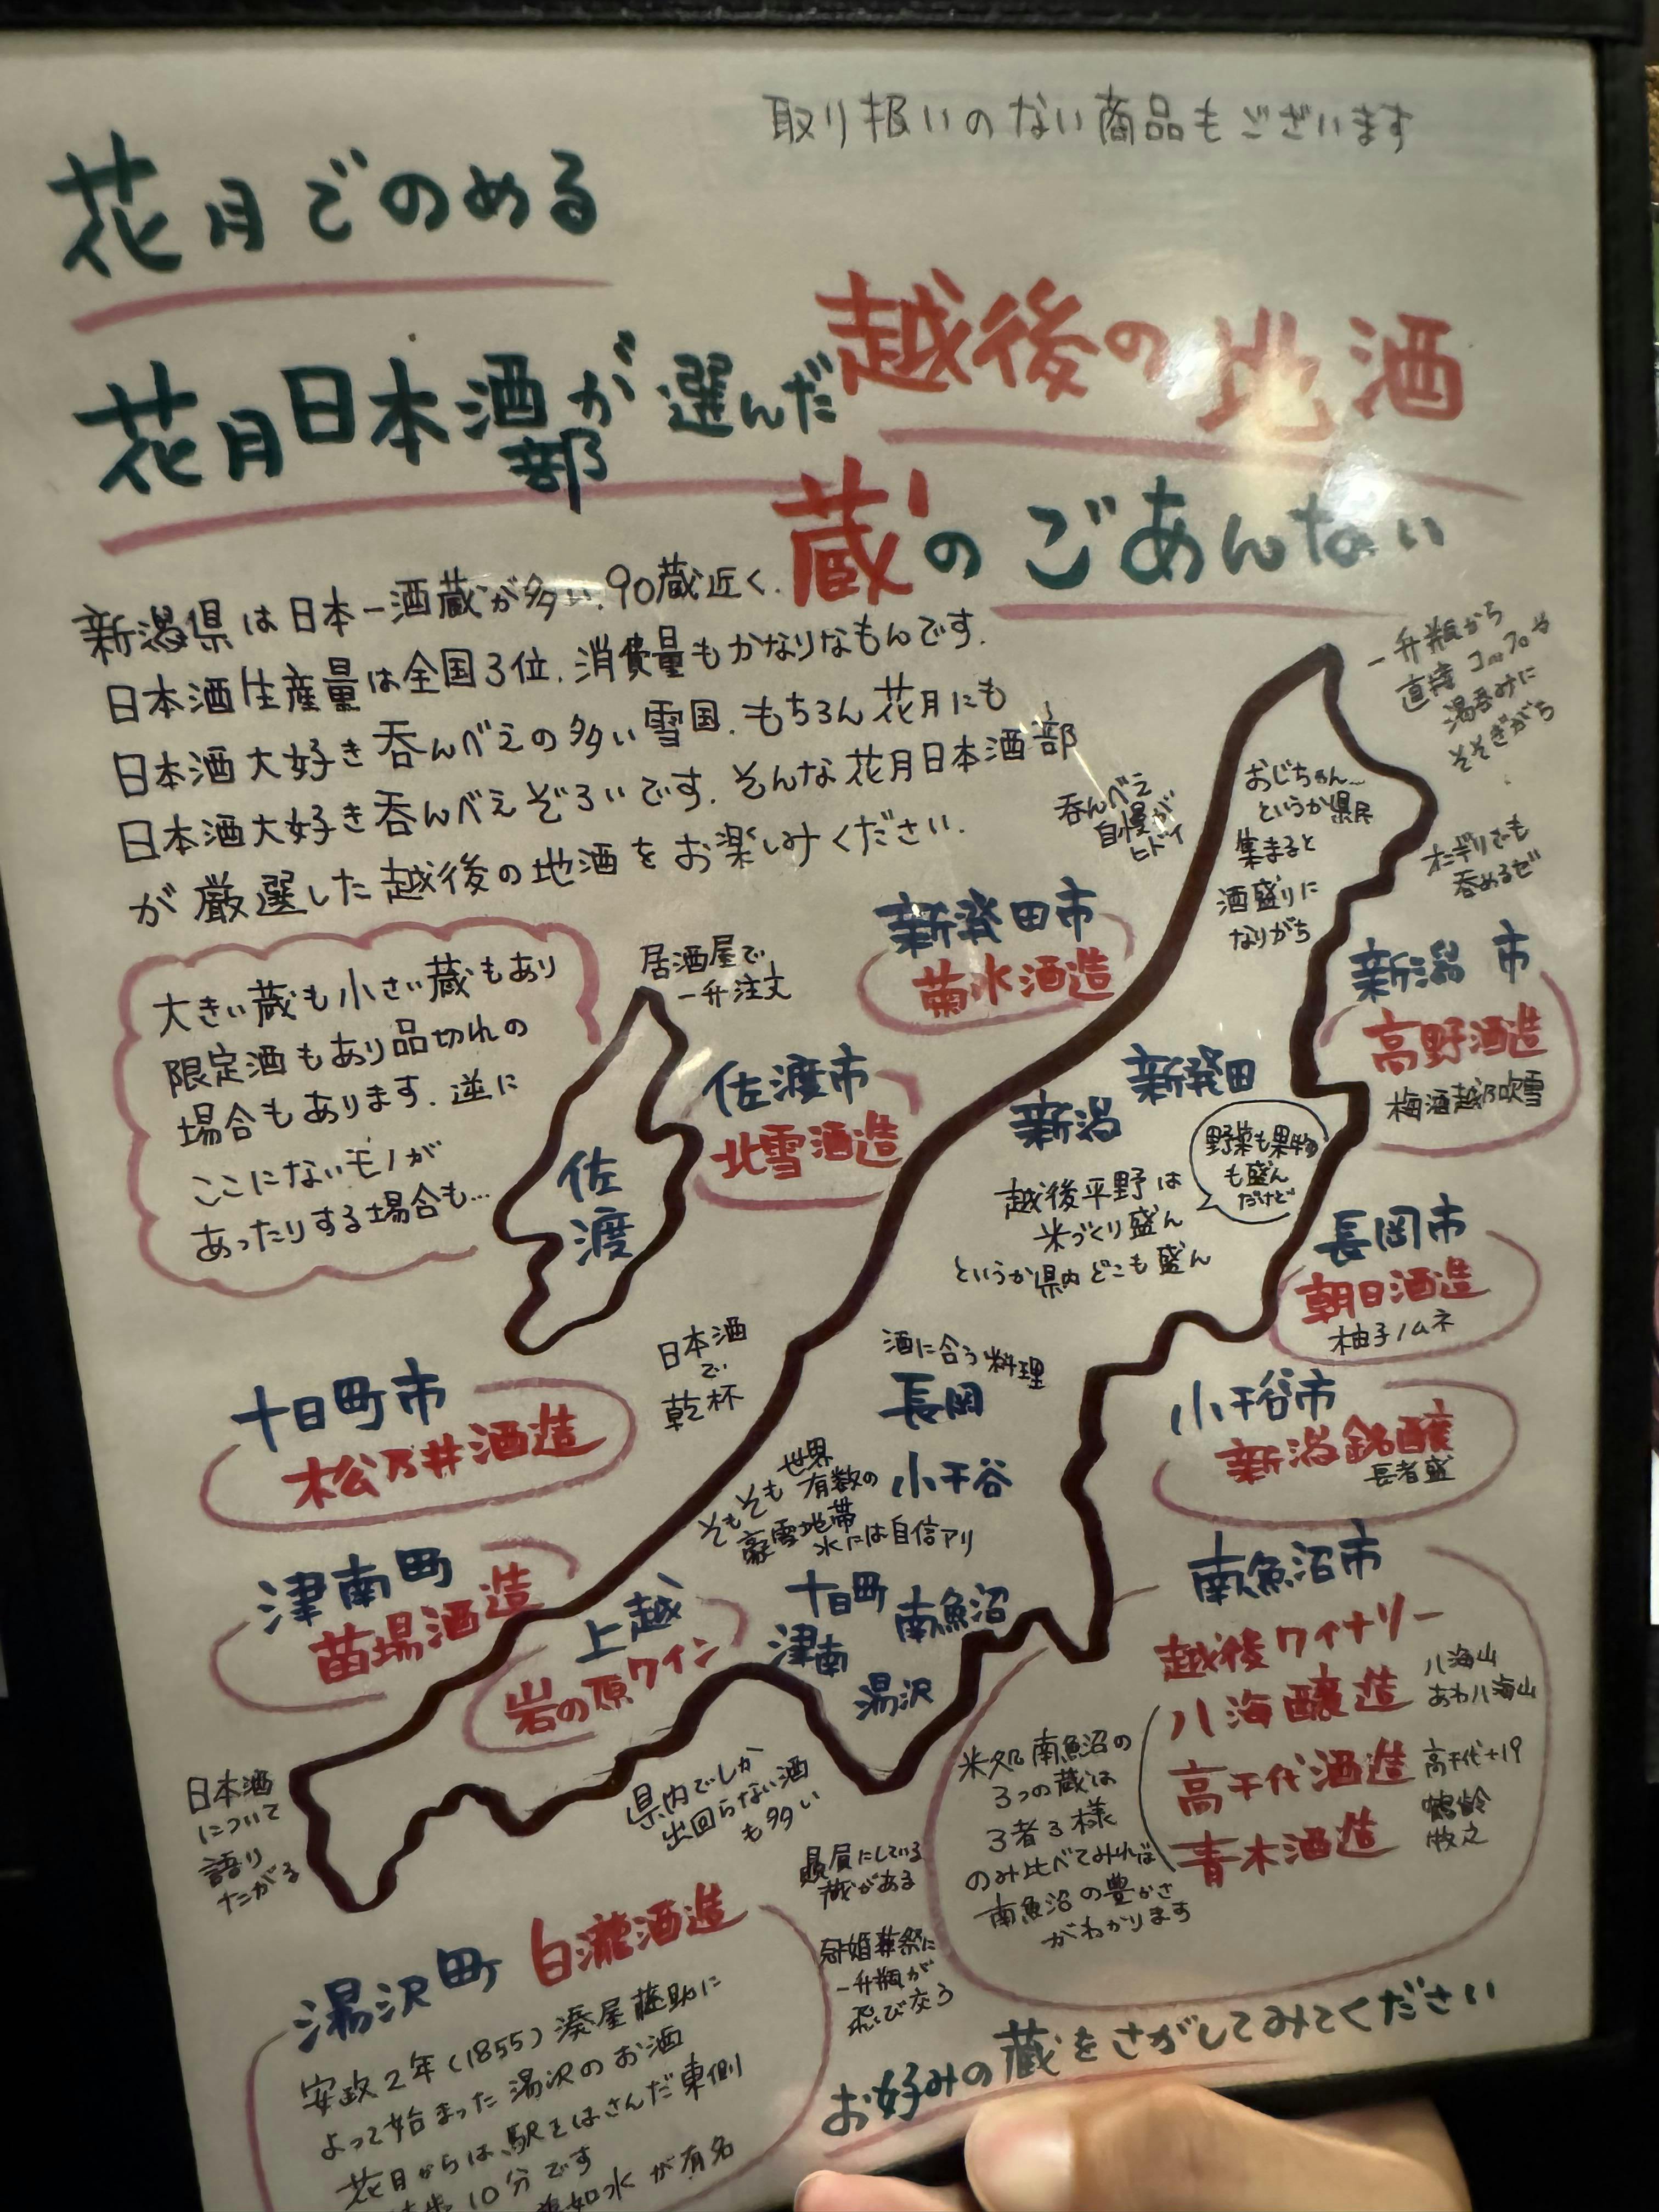 取り扱いのない商品もございます
花月でのめる
花月日本酒部が選んだ越後の地酒
蔵のごあんない
新潟県は日本一酒蔵が多い、90蔵近く、
日本酒生産量は全国3位、消費量もかなりなもんです。
日本酒大好き呑んべえの多い雪国、もちろん花月にも
日本酒大好き呑んべえぞろいです。そんな花月日本酒部
が厳選した越後の地酒をお楽しみください。
大きい蔵も小さい蔵もあり
限定酒もあり品切れの
場合もあります。逆に
ここにないモノが
あったりする場合も…
居酒屋で
一升注文
佐渡
佐渡市
北雪酒造
新発田市
菊水酒造
呑んべえ
自慢が
ヒドイ
一升瓶から
直接コップや
湯呑みに
そそぎがち
おじちゃん…
というか県民
集まると
酒盛りに
なりがち
オニギリでも
呑めるぜ
新潟市
高野酒造
梅酒越乃吹雪
新発田
新潟
野菜も果物
も盛ん
だけど
越後平野は
米づくり盛ん
というか県内どこも盛ん
長岡市
朝日酒造
柚子ノムネ
日本酒
で
乾杯
酒に合う料理
長岡
小千谷
小千谷市
新潟銘醸
長者盛
十日町市
松乃井酒造
そもそも世界
有数の
豪雪地帯
水には自信アリ
津南町
苗場酒造
上越
岩の原ワイン
十日町
津南
南魚沼
湯沢
南魚沼市
越後ワイナリー
八海醸造
八海山
あわ八海山
高千代酒造
高千代+19
青木酒造
鶴齢
牧之
米処南魚沼の
3つの蔵は
3者3様
のみ比べてみれば
南魚沼の豊かさ
がわかります
日本酒
について
語り
たがる
県内でしか
出回らない酒
も多い
贔屓にしている
蔵がある
冠婚葬祭に
一升瓶が
飛び交う
湯沢町 白瀧酒造
安政2年(1855)湊屋藤助に
よって始まった湯沢のお酒
花月からは、駅をはさんだ東側
徒歩10分です
如水が有名
お好みの蔵をさがしてみてください